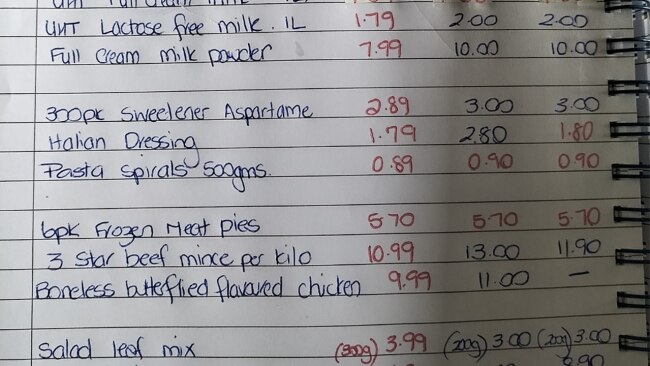 UHT Full Cream milk
UHT Lactose free milk. 1L 1.79 2.00 2.00
Full Cream milk powder 7.99 10.00 10.00
300pk Sweetener Aspartame 2.89 3.00 3.00
Italian Dressing 1.79 2.80 1.80
Pasta Spirals 500gms. 0.89 0.90 0.90
6pk Frozen Meat pies 5.70 5.70 5.70
3 Star beef mince per kilo 10.99 13.00 11.90
Boneless butteflied flavoured chicken 9.99 11.00 —
Salad leaf mix (300g) 3.99 (200g) 3.00 (200g) 3.00